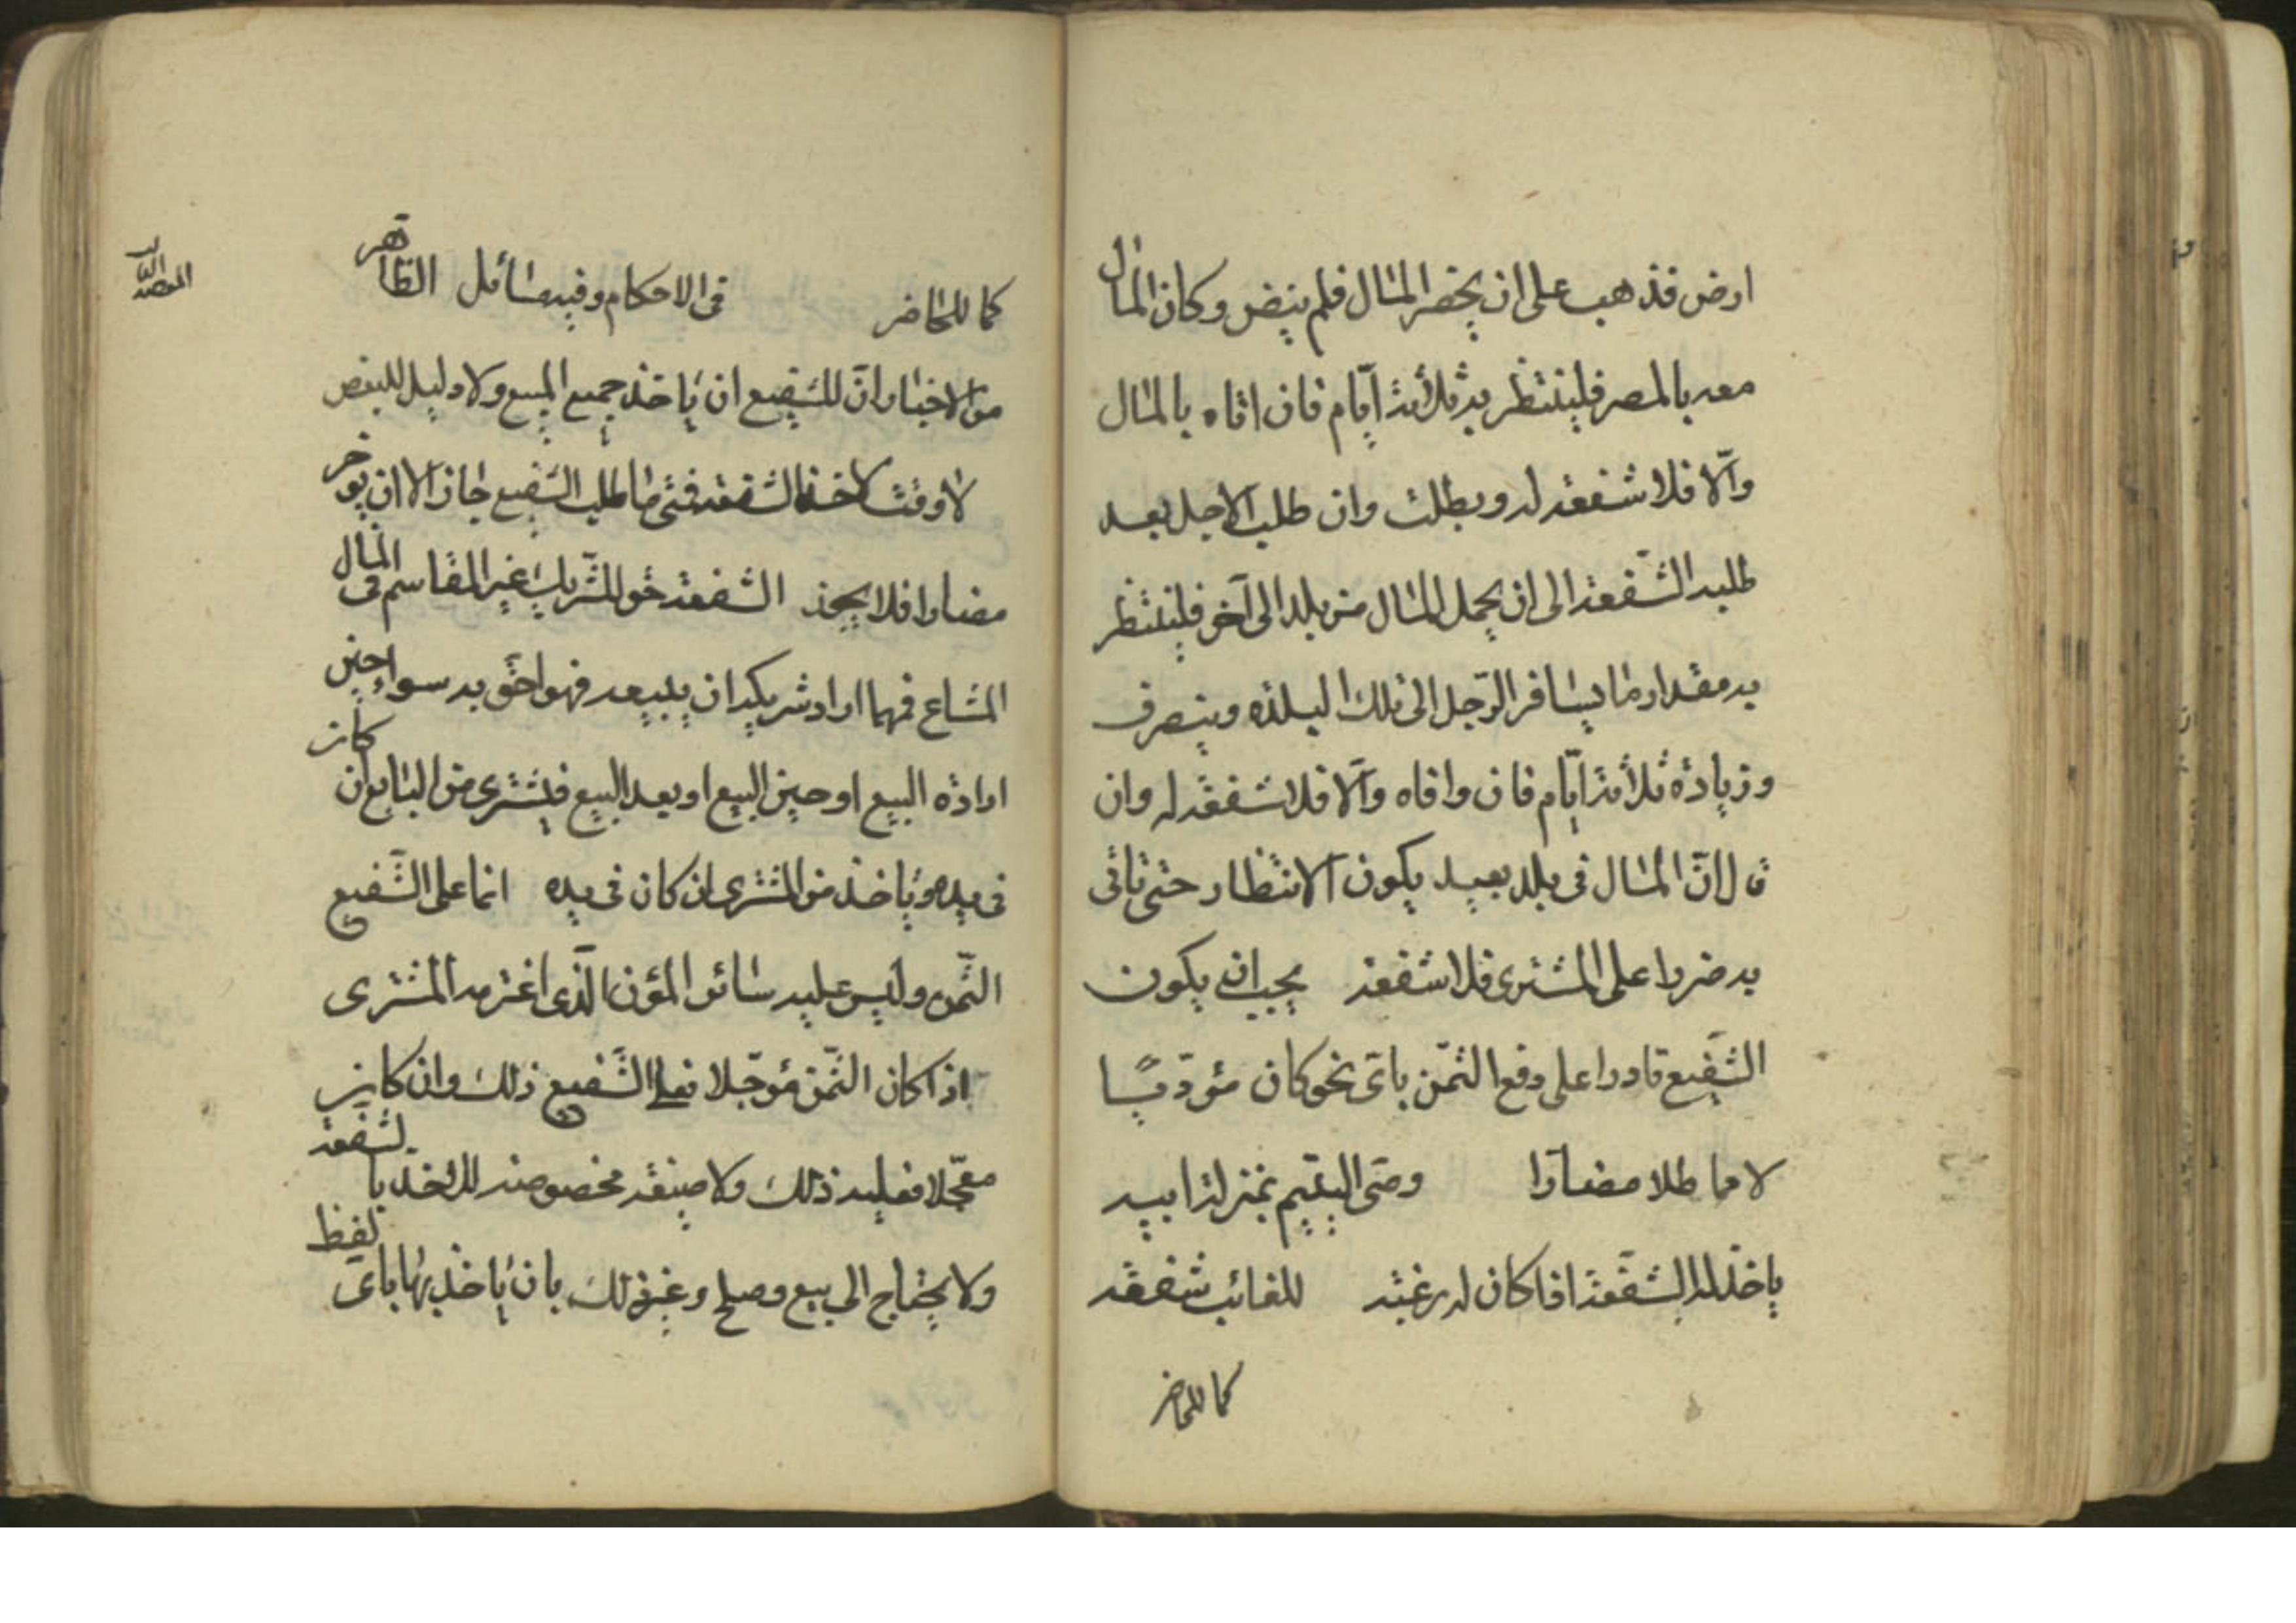 ارض فذهب على ان يحضر المال فلم ينض وكان المال
معه بالمصر فلينتظر به ثلاثة ايّام فان اتاه بالمال
والّا فلا شفعة له وبطلت وان طلب الاجل بعد
طلبه الشّفعة الى ان يحمل المال من بلد الى آخر فلينتظر
به مقدار ما يسافر الرّجل الى تلك البلدة وينصرف
وزيادة ثلاثة ايّام فان وافاه والّا فلا شفعة له وان
قال انّ المال في بلد بعيد يكون الانتظار حتى تاتى
به ضررا على المشترى فلا شفعة يجب ان يكون
الشّفيع قادرا على دفع الثّمن باىّ نحو كان مؤدّيا
لا مماطلا مضارّا وصىّ اليتيم بمنزلة ابيه
ياخذ له الشّفعة اذا كان له رغبة للغائب شفعة
كما للحاضر
كما للحاضر في الاحكام وفيه مسائل الظّاهر
من الاخبار انّ للشفيع ان ياخذ جميع المبيع ولا دليل للبعض
لا وقت لاخذ الشفعة فمتى ما طلب الشّفيع جاز الا ان يؤخر
مضارا فلا يجوز الشفعة حق للشّريك غير المقاسم في المال
المشاع فمهما اراد شريكه ان يبيعه فهو احقّ به سوا حين
ارادة البيع او حين البيع او بعد البيع فيشترى من البايع ان كان
في يده وياخذ من المشترى ان كان في يده انما على الشّفيع
الثّمن وليس عليه سائر المؤن الّذى اغترمه المشترى
اذا كان الثّمن مؤجّلا فعلى الشّفيع ذلك وان كان
معجّلا فعليه ذلك ولا صيغة مخصوصة للاخذ بالشفعة
ولا يحتاج الى بيع وصلح وغير ذلك بان ياخذ بها باىّ لفظ